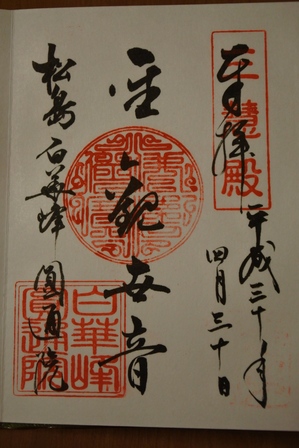 三慧殿
平成三十年
四月三十日
聖 観世音
松島 白華峰 圓通院
白華峰
圓通院